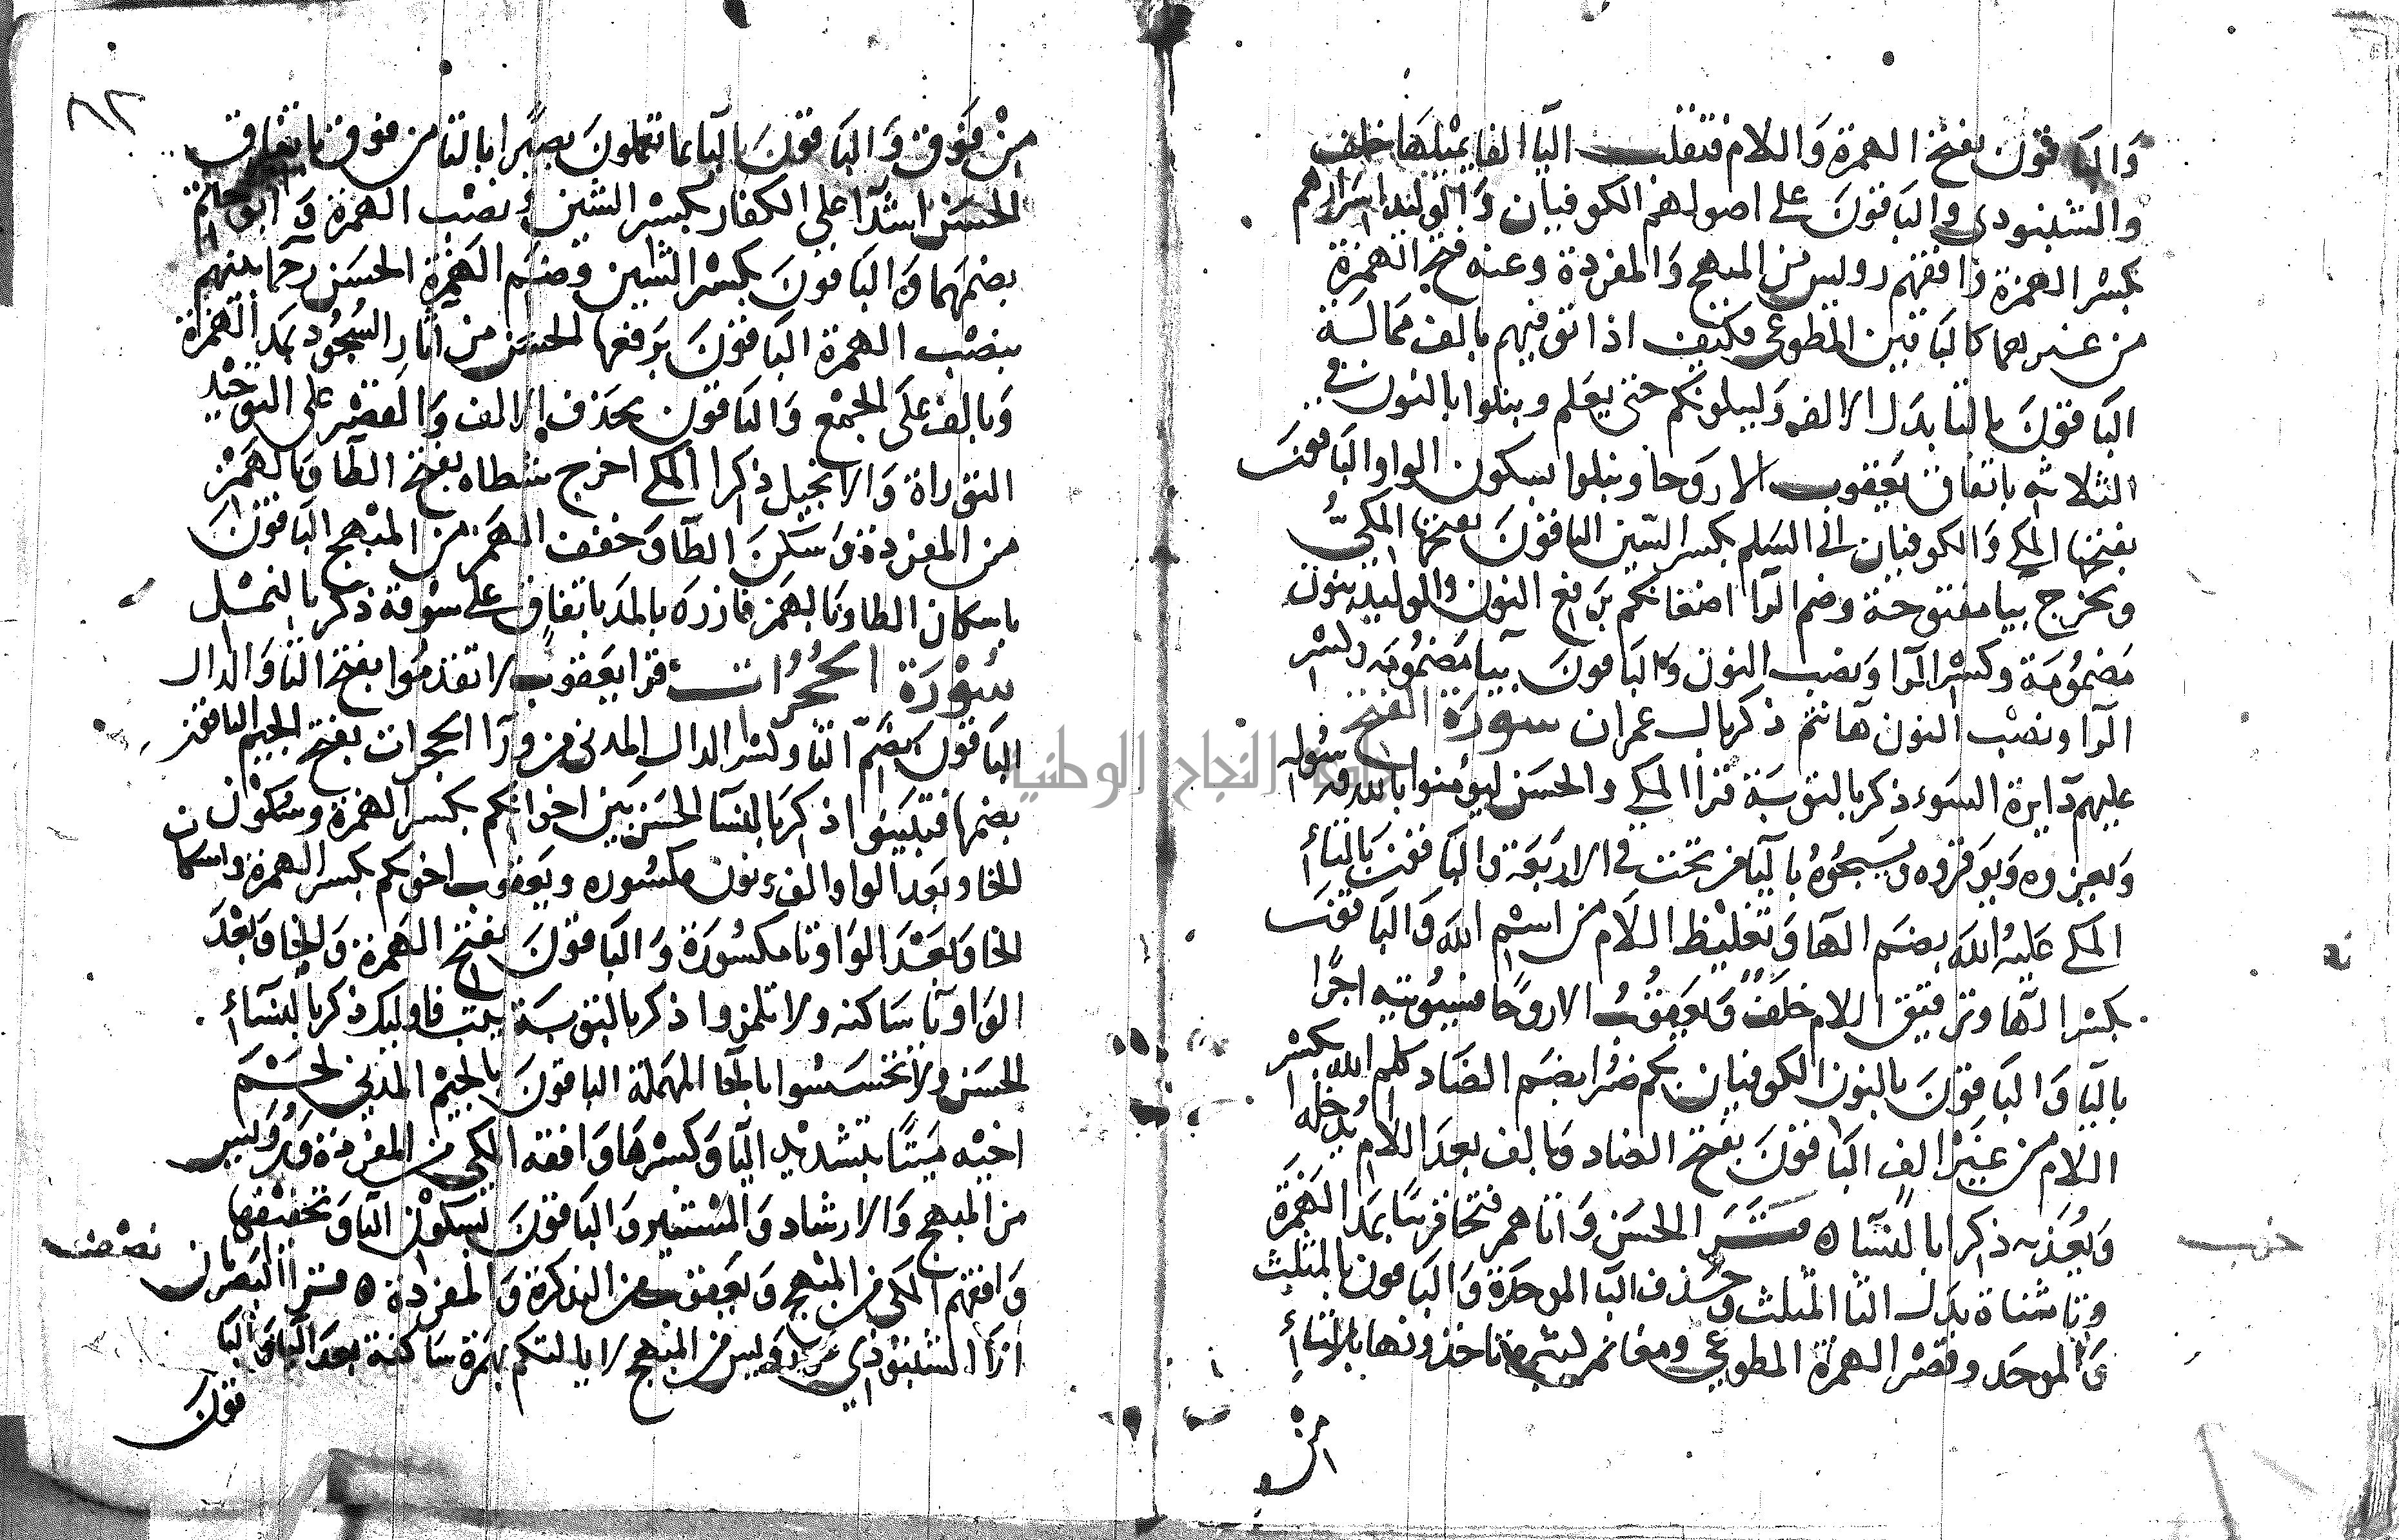 وَالبَاقون بفتح الهمزة وَاللام فتقلب اليَا الفا يمثلهَا خلف
والشنبوذي والبَاقونَ على اصولهم الكوفيان وَالوليد اسرارهم
بكسر الهمزة وَافقهم رويس من المبهج وَالمفردة وعنه فتح الهمزة
من غيرهما كالبَاقين المطوعي فكيف اذا توفيهم بالف ممَالَة
البَاقونَ بالتا بدَل الالف وَليبلونكم حتى يعلم ويبلوا بالنون في
الثلاثة باتفاق يَعقوب الا روحا ونبلوا بسكون الواو البَاقونَ
بفتحها المكي وَالكوفيان الى السَلم بكسر السّين الباقونَ بفتحها المكيُّ
ويخرج بيا مفتوحة وضم الرَا اضغانكم برَفع النون وَالوليد بنون
مَضمُومَة وكسْر الرَا وَنصب النون وَالبَاقونَ بيَا مَضمُومَه وكسْر
الرَا ونصْب النون هَا نتم ذكر بال عمران سورَة الفتح
عليهم دَايرة السَوء ذكر بالتوبَة قرَا المكي والحسَن ليؤمنوا بالله وَرسُوله
وَيعزروه وَيوَقروه وَيسَبحُوهُ باليَا من تحت في الاربَعَة وَالبَاقونَ بَالتاء
المكي عَليهُ اللهَ بضَم الهَا وَتغليْظ اللَام من اسْم الله وَالبَاقونَ
بكسْر الهَا وترقيق اللام خلفٌ وَيَعقوُبُ الا روحًا فسيُوتيه اجرًا
باليَا وَالبَاقونَ بالنون الكوفيان بكم ضرا بضَم الضَاد كلم الله بكسْر
اللام من غَيْر الف البَاقونَ بفتح الضاد وَبالف بعدَ اللام يدخله
وَيُعَذبه ذكرا بالنسَا ه قَــرَا الحسَن وَاتاهم فتحا قريبًا بمَد الهَمْزة
وتا مثناة بدَل الثا المثلث وَحَذف البَا الموحدَة وَالبَاقون بالمثلث
وَالموحَد وقصْر الهمزة المطوعي ومغانم كثيرة تاخذونها بالتاء
من
حزب
٦٢
منْ فَوق وَالبَاقونَ باليَا بما تعملونَ بصيرًا بالتا من فوق باتفاق
الحسَن اشدَآ على الكفار بكسْر الشين وَنصْب الهمزة وَابو حاتم
بضمهَما وَالبَاقونَ بكسْر الشين وَضم الهَمْزة الحسَن رحمآ بينهم
بنصْب الهمزة البَاقونَ برَفعها الحسَن من آثارِ السُجُود بمَد الهَمْزة
وَبالف عَلَى الجمْع وَالبَاقون بحَذف الالف وَالقصْر على التوحْيد
التورَاة وَالانجيل ذكرا المكي اخرج شطاه بفتح الطَا وَبالهَمْز
من المفرَدة وَسَكنَ الطَا وَخفف الهَمز من المبْهج البَاقونَ
باسكان الطا وَبالهمَز فازرَه بالمَد باتفاق على سُوقه ذكر بالنمْل
سُوْرَة الحُجُرَات قرا يَعقوب لا تقدمُوا بفتح التا وَالدال
البَاقونَ بضَمّ التا وكسْر الدال المدني من ورَآ الحجرات بفتح الجيم الباقون
بضمها فتبيَنوا ذكرَ بالنسَا الحسَن بَين اخوانكم بكسر الهَمزة وسُكوْن
الخا وبعَد الواو الف ونون مكسُوره ويَعقوب اخوتكم بكسر الهمزة واسكان
الخا وَبعْدَ الوَاو تا مكسُورَة وَالبَاقونَ بفتْح الهَمزة وَالخا وَبعْدَ
الوَاو يَا سَاكنه ولا تلمزوا ذكر بالتوبَة يتب فاوليك ذكر بالنسَاء
الحسَن ولَا تحَسسُوا بالحَا المهمَلة الباقونَ بالجيْم المدني لحَــم
اخيْه ميّتًا بتشديْد اليَا وَكسْرهَا وَافقه المكي من المفرَدة وَرُوَيس
من المبهج وَالارشاد وَالمستنير وَالبَاقونَ بسكوْن اليَا وَتخفيْفها
وَافقهم المكي من المبْهج وَيَعقوب من التذكرَة وَالمفرَدة ه قــرَا البَصريان
ازَا الشنبوُذي عن رويس من المبْهج لا يالتكم بهَمزة سَاكنة بعدَ اليَا وَالبَا
قونَ
نصْف
جامعة النجاح الوطنية